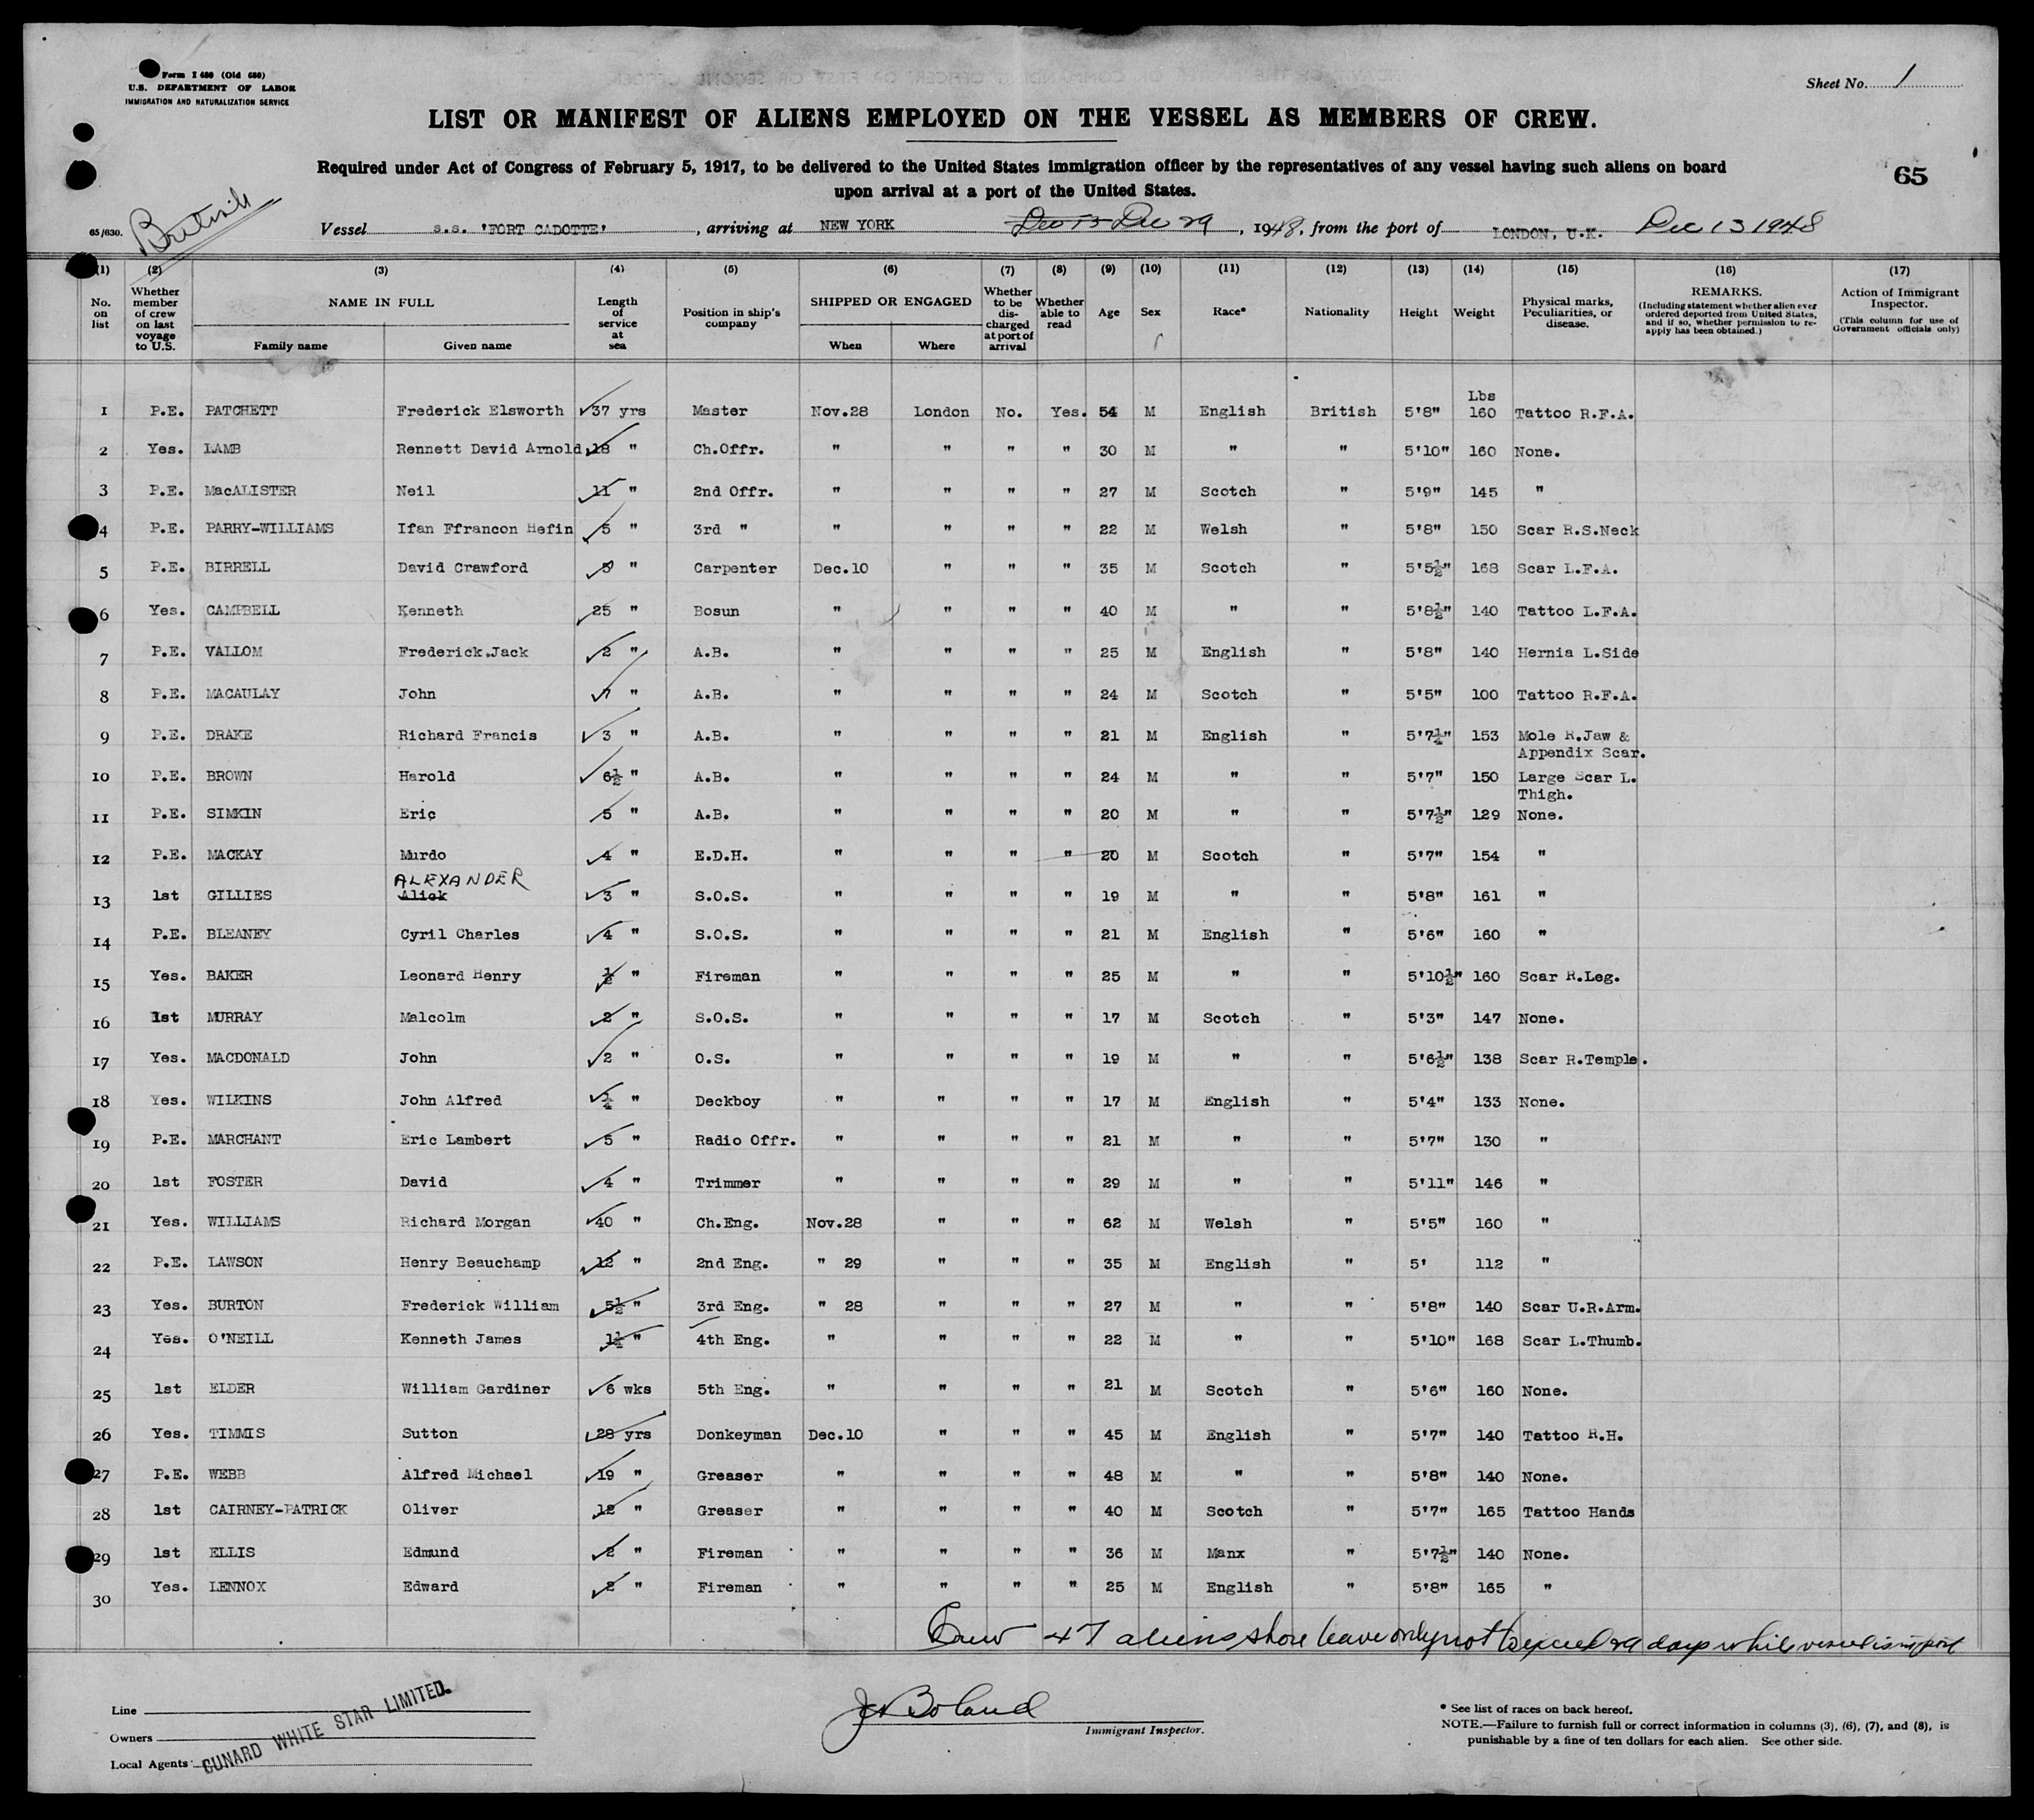 Form I 480 (Old 680)
U.S. DEPARTMENT OF LABOR
IMMIGRATION AND NATURALIZATION SERVICE
Sheet No. 1
LIST OR MANIFEST OF ALIENS EMPLOYED ON THE VESSEL AS MEMBERS OF CREW.
Required under Act of Congress of February 5, 1917, to be delivered to the United States immigration officer by the representatives of any vessel having such aliens on board
upon arrival at a port of the United States.
65
British
65/630.
Vessel s.s. 'FORT CADOTTE', arriving at NEW YORK Dec 13 Dec 29, 1948, from the port of LONDON, U.K. Dec 13 1948
(1) (2) (3) (4) (5) (6) (7) (8) (9) (10) (11) (12) (13) (14) (15) (16) (17)
No. on list
Whether member of crew on last voyage to U.S.
NAME IN FULL
Family name Given name
Length of service at sea
Position in ship's company
SHIPPED OR ENGAGED
When Where
Whether to be discharged at port of arrival
Whether able to read
Age
Sex
Race*
Nationality
Height
Weight
Physical marks, Peculiarities, or disease.
REMARKS.
(Including statement whether alien ever ordered deported from United States, and if so, whether permission to reapply has been obtained.)
Action of Immigrant Inspector.
(This column for use of Government officials only)
Lbs
1 P.E. PATCHETT Frederick Elsworth 37 yrs Master Nov.28 London No. Yes. 54 M English British 5'8" 160 Tattoo R.F.A.
2 Yes. LAMB Rennett David Arnold 18 " Ch.Offr. " " " " 30 M " " 5'10" 160 None.
3 P.E. MacALISTER Neil 11 " 2nd Offr. " " " " 27 M Scotch " 5'9" 145 "
4 P.E. PARRY-WILLIAMS Ifan Ffrancon Hefin 5 " 3rd " " " " " 22 M Welsh " 5'8" 150 Scar R.S.Neck
5 P.E. BIRRELL David Crawford 5 " Carpenter Dec.10 " " " 35 M Scotch " 5'5½" 168 Scar L.F.A.
6 Yes. CAMPBELL Kenneth 25 " Bosun " " " " 40 M " " 5'8½" 140 Tattoo L.F.A.
7 P.E. VALLOM Frederick.Jack 2 " A.B. " " " " 25 M English " 5'8" 140 Hernia L.Side
8 P.E. MACAULAY John 7 " A.B. " " " " 24 M Scotch " 5'5" 100 Tattoo R.F.A.
9 P.E. DRAKE Richard Francis 3 " A.B. " " " " 21 M English " 5'7¼" 153 Mole R.Jaw &
Appendix Scar.
10 P.E. BROWN Harold 6½ " A.B. " " " " 24 M " " 5'7" 150 Large Scar L.
Thigh.
11 P.E. SIMKIN Eric 5 " A.B. " " " " 20 M " " 5'7½" 129 None.
12 P.E. MACKAY Murdo 4 " E.D.H. " " " " 20 M Scotch " 5'7" 154 "
ALEXANDER
13 1st GILLIES Alick 3 " S.O.S. " " " " 19 M " " 5'8" 161 "
14 P.E. BLEANEY Cyril Charles 4 " S.O.S. " " " " 21 M English " 5'6" 160 "
15 Yes. BAKER Leonard Henry ½ " Fireman " " " " 25 M " " 5'10½" 160 Scar R.Leg.
16 1st MURRAY Malcolm 2 " S.O.S. " " " " 17 M Scotch " 5'3" 147 None.
17 Yes. MACDONALD John 2 " O.S. " " " " 19 M " " 5'6½" 138 Scar R.Temple.
18 Yes. WILKINS John Alfred ¼ " Deckboy " " " " 17 M English " 5'4" 133 None.
19 P.E. MARCHANT Eric Lambert 5 " Radio Offr. " " " " 21 M " " 5'7" 130 "
20 1st FOSTER David 4 " Trimmer " " " " 29 M " " 5'11" 146 "
21 Yes. WILLIAMS Richard Morgan 40 " Ch.Eng. Nov.28 " " " 62 M Welsh " 5'5" 160 "
22 P.E. LAWSON Henry Beauchamp 12 " 2nd Eng. " 29 " " " 35 M English " 5' 112 "
23 Yes. BURTON Frederick William 5½ " 3rd Eng. " 28 " " " 27 M " " 5'8" 140 Scar U.R.Arm.
24 Yes. O'NEILL Kenneth James 1¼ " 4th Eng. " " " " 22 M " " 5'10" 168 Scar L.Thumb.
25 1st ELDER William Gardiner 6 wks 5th Eng. " " " " 21 M Scotch " 5'6" 160 None.
26 Yes. TIMMIS Sutton 28 yrs Donkeyman Dec.10 " " " 45 M English " 5'7" 140 Tattoo R.H.
27 P.E. WEBB Alfred Michael 19 " Greaser " " " " 48 M " " 5'8" 140 None.
28 1st CAIRNEY-PATRICK Oliver 12 " Greaser " " " " 40 M Scotch " 5'7" 165 Tattoo Hands
29 1st ELLIS Edmund 2 " Fireman " " " " 36 M Manx " 5'7½" 140 None.
30 Yes. LENNOX Edward 2 " Fireman " " " " 25 M English " 5'8" 165 "
Crew 47 aliens shore leave only not to exceed 29 days while vessel is in port
Line
Owners
Local Agents
CUNARD WHITE STAR LIMITED.
J Boland
Immigrant Inspector.
* See list of races on back hereof.
NOTE.—Failure to furnish full or correct information in columns (3), (6), (7), and (8), is
punishable by a fine of ten dollars for each alien. See other side.